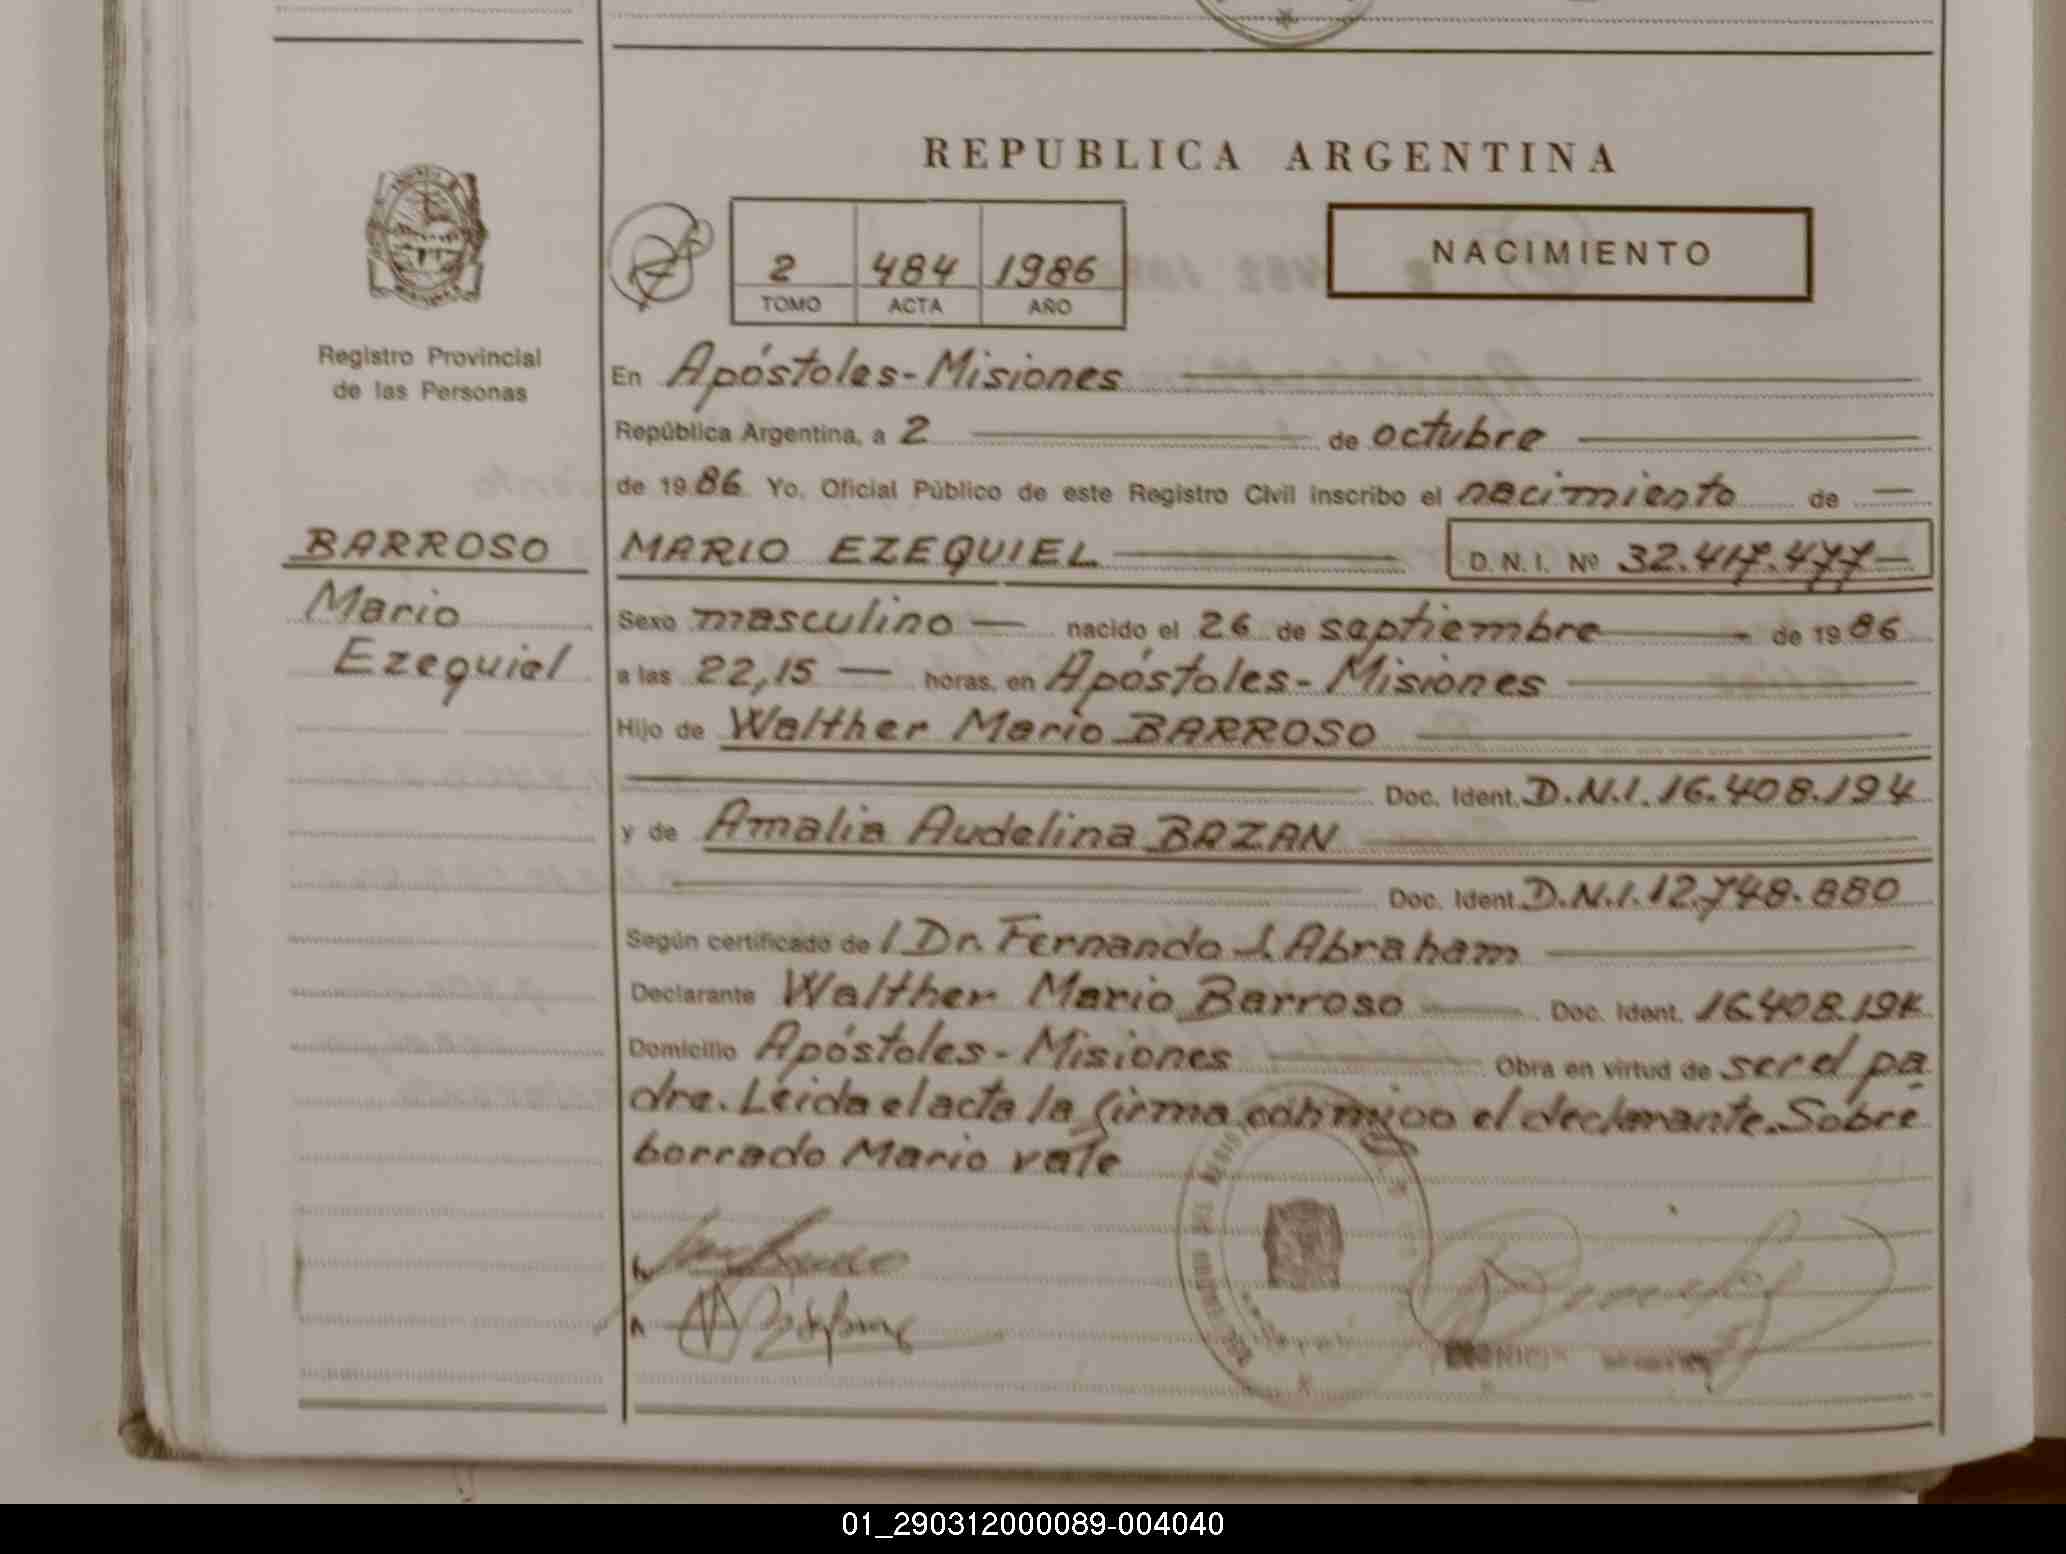 REPUBLICA ARGENTINA
2 484 1986
TOMO ACTA AÑO
NACIMIENTO
Registro Provincial
de las Personas
En Apóstoles-Misiones
República Argentina, a 2 de octubre
de 1986 Yo, Oficial Público de este Registro Civil inscribo el nacimiento de —
BARROSO
Mario
Ezequiel
MARIO EZEQUIEL — D. N. I. Nº 32.417.477—
Sexo masculino — nacido el 26 de septiembre — de 1986
a las 22,15 — horas, en Apóstoles-Misiones
Hijo de Walther Mario BARROSO
Doc. Ident. D.N.I. 16.408.194
y de Amalia Audelina BAZAN
Doc. Ident. D.N.I. 12.748.880
Según certificado de / Dr. Fernando J. Abraham
Declarante Walther Mario Barroso — Doc. Ident. 16.408.194
Domicilio Apóstoles-Misiones Obra en virtud de ser el pa
dre. Leida el acta la firma conmigo el declarante. Sobre
borrado Mario vale
01_290312000089-004040